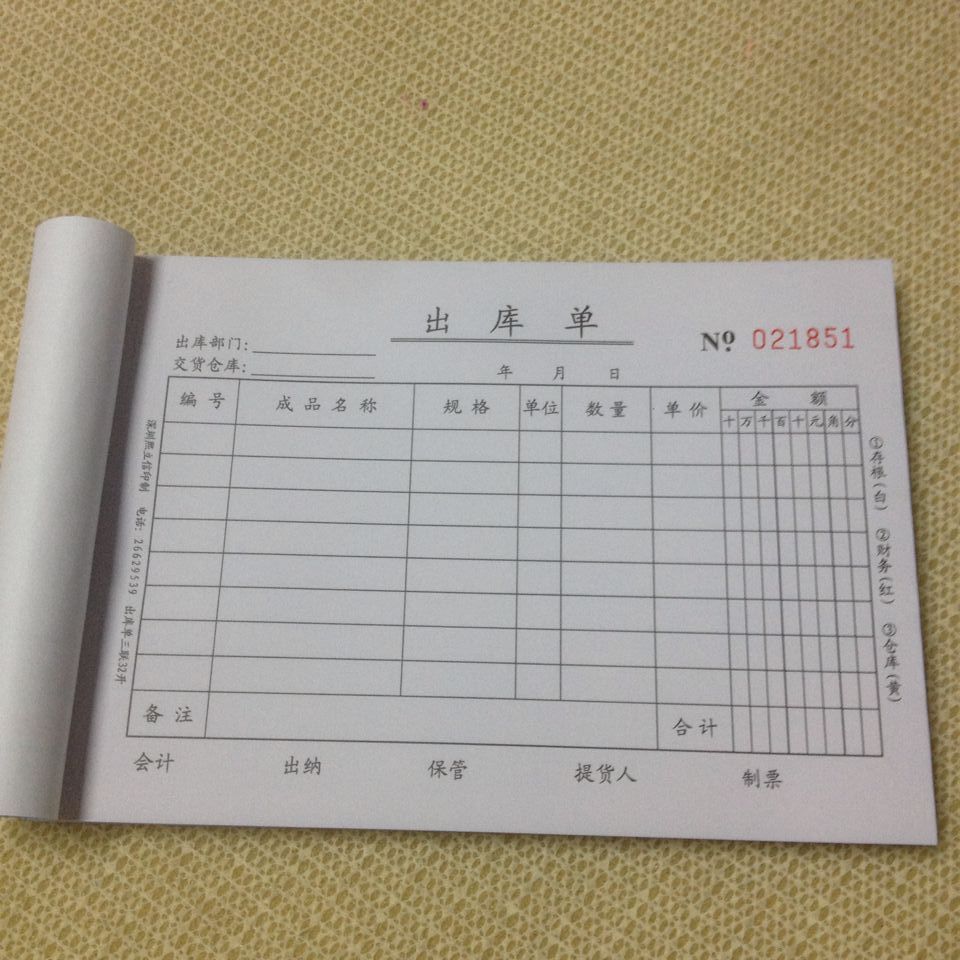 出库单
No. 021851
出库部门:
交货仓库:
年 月 日
编号 成品名称 规格 单位 数量 单价 金额
十 万 千 百 十 元 角 分
备注 合计
会计 出纳 保管 提货人 制票
①存根(白) ②财务(红) ③仓库(黄)
深圳熙立信印制 电话: 26629539 出库单三联32开